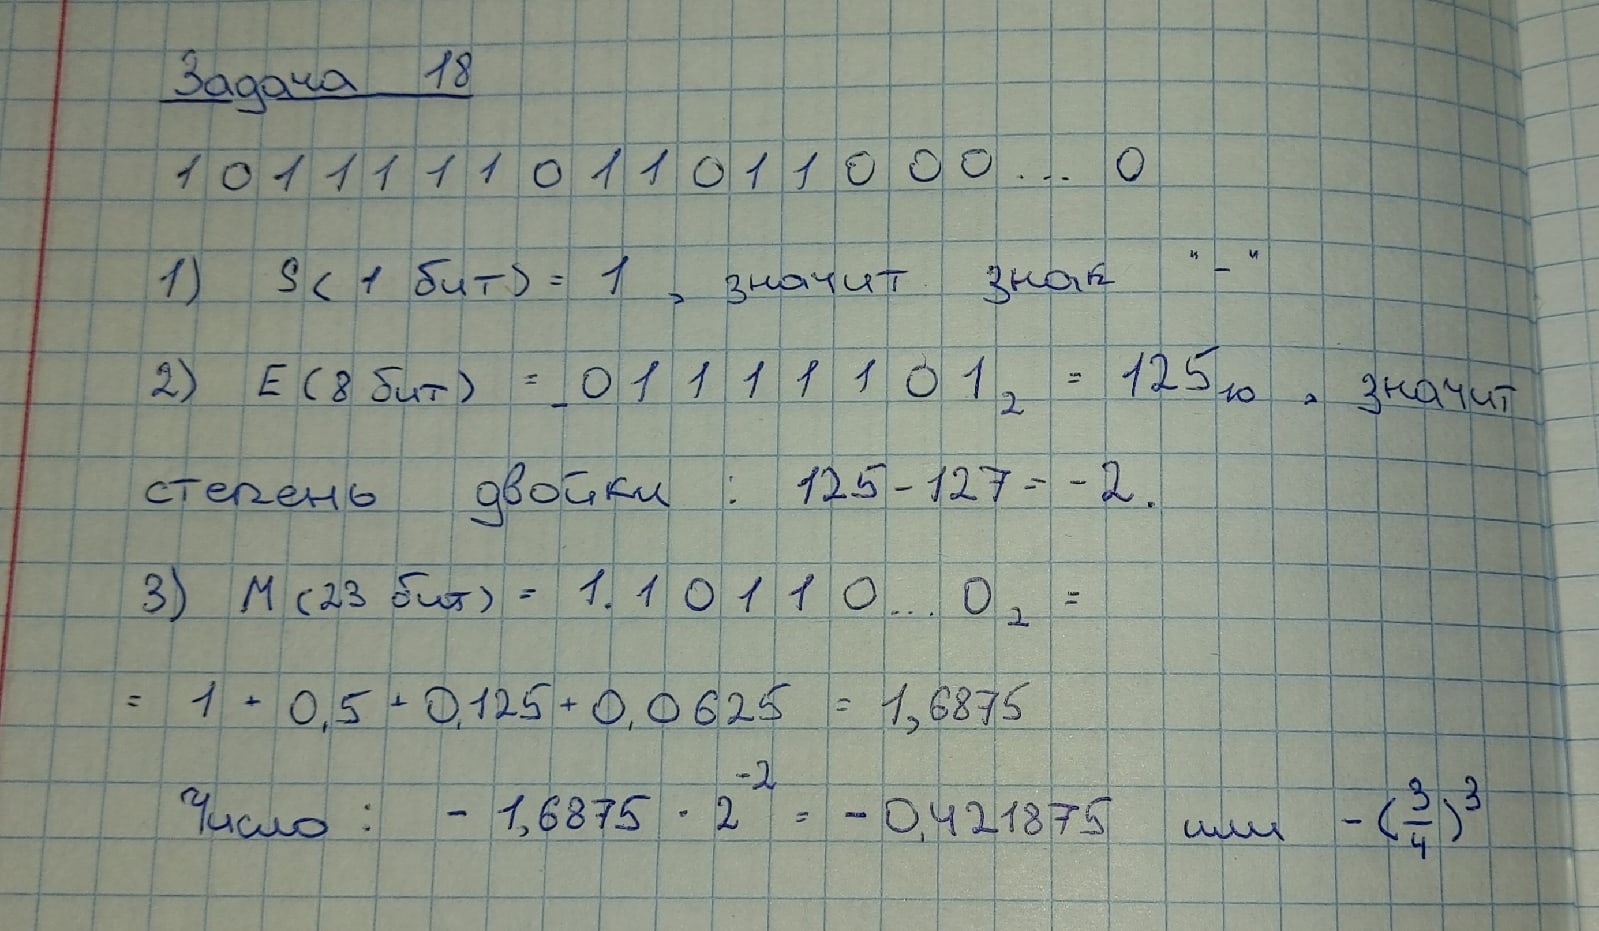 Задача 18
1 0 1 1 1 1 1 0 1 1 0 1 1 0 0 0 ... 0
1) S(1 бит) = 1, значит знак "-"
2) E(8 бит) = 0 1 1 1 1 1 0 1₂ = 125₁₀, значит
степень двойки : 125 - 127 = -2.
3) M(23 бит) = 1.1 0 1 1 0 ... 0₂ =
= 1 + 0,5 + 0,125 + 0,0625 = 1,6875
Число : - 1,6875 · 2⁻² = - 0,421875 или -(3/4)³